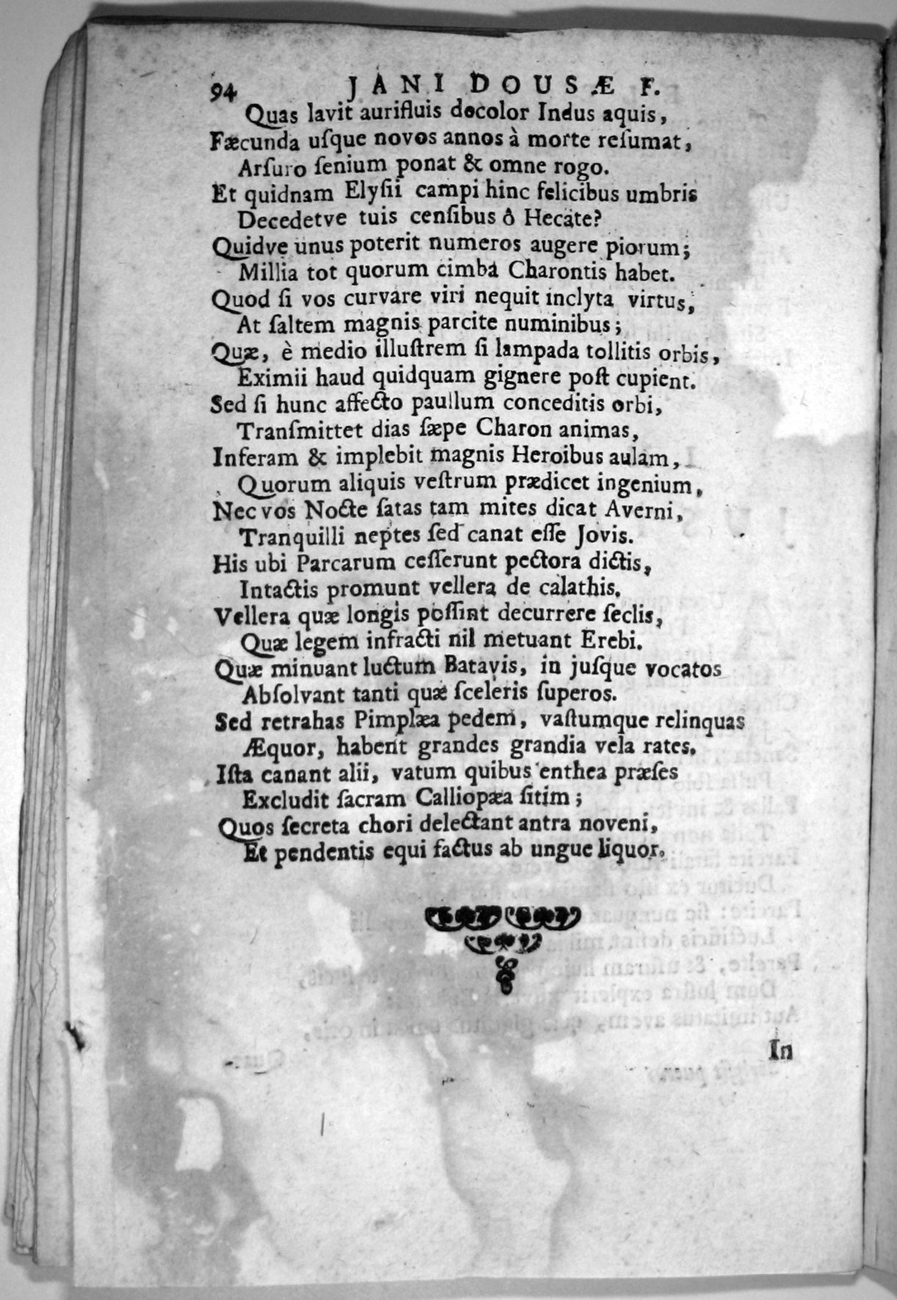 94 JANI DOUSÆ F.
Quas lavit aurifluis decolor Indus aquis,
Fæcunda uſque novos annos à morte reſumat,
Arſuro ſenium ponat & omne rogo.
Et quidnam Elyſii campi hinc felicibus umbris
Decedetve tuis cenſibus ô Hecate?
Quidve unus poterit numeros augere piorum;
Millia tot quorum cimba Charontis habet.
Quod ſi vos curvare viri nequit inclyta virtus,
At ſaltem magnis parcite numinibus;
Quæ, è medio illuſtrem ſi lampada tollitis orbis,
Eximii haud quidquam gignere poſt cupient.
Sed ſi hunc affecto paullum conceditis orbi,
Tranſmittet dias ſæpe Charon animas,
Inferam & implebit magnis Heroibus aulam,
Quorum aliquis veſtrum prædicet ingenium,
Nec vos Nocte ſatas tam mites dicat Averni,
Tranquilli neptes ſed canat eſſe Jovis.
His ubi Parcarum ceſſerunt pectora dictis,
Intactis promunt vellera de calathis.
Vellera quæ longis poſſint decurrere ſeclis,
Quæ legem infracti nil metuant Erebi.
Quæ minuant luctum Batavis, in juſque vocatos
Abſolvant tanti quæ ſceleris ſuperos.
Sed retrahas Pimplæa pedem, vaſtumque relinquas
Æquor, habent grandes grandia vela rates.
Iſta canant alii, vatum quibus enthea præſes
Excludit ſacram Calliopæa ſitim;
Quos ſecreta chori delectant antra noveni,
Et pendentis equi factus ab ungue liquor.
In